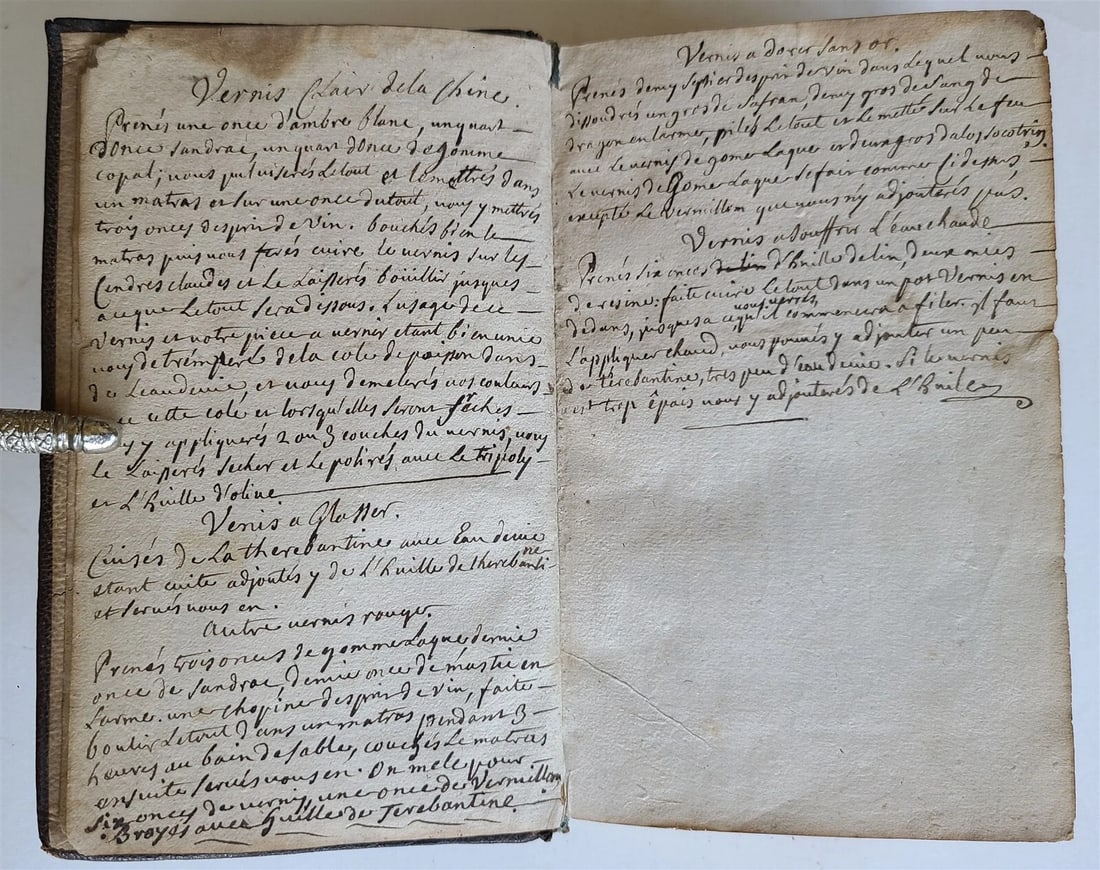 Vernis Clair de la Chine.
Prenés une once d'ambre blanc, un quart
d'once sandrac, un quart d'once de gomme
copal; vous pulviserés Letout et le mettrés dans
un matras et sur une once dutout, vous y mettrés
trois onces desprit de vin. bouchés bien le
matras puis vous ferés cuire le vernis sur les
Cendres claudes et Le Laisserés boüillir jusques
aceque Letout sera dessous. L'usage de ce
vernis et votre piece a verner etant bien unie
vous detrémperé de la cole de poisson dans
de L'eaudevie, et vous demelerés vos couleurs
cette cole et lorsqu'elles seront séches
y appliquerés 2 ou 3 couches du vernis, vous
le Laisserés secher et Le polirés avec Le tripoly
et L'huille d'olive.
Venis a Glasser.
Cuisés de La therebantine avec Eau devie
estant cuite adjoutés y de L'huille de therebantine
et servés vous en.
Autre vernis rouge.
Prenés trois onces de gomme Laque demie
once de sandrac, demie once de mastic en
Larme. une chopine desprit de vin, faite
boulir Letout dans un matras pendant 3
heures au bain de sable, couchés Le matras
ensuite servés vous en. On mele pour
six onces de vernis une once de Vermillon
Broyés avec huille de Terebantine.
Vernis a dorer sans or.
Prenés demy septier desprit de vin dans Lequel vous
dissoudrés un gros de safran, demy gros de sang de
dragon en larme, pilés Letout et Le mettés sur Le feu
avec Le vernis de gome Laque et deux gros d'alos socotrin
Le vernis de Gome Laque se fair comme cy dessus,
excepté Le vermillon que vous n'y adjouterés pas.
Vernis a souffrir L'eau chaude
Prenés six onces de lin d'huille de lin, deux onces
de resine: faite cuire Letout dans un pot Vernis en
dedans, jusques a ce vous verrés qu'il commencera a filer. yl faut
L'appliquer chaud, vous pouvés y adjouter un peu
de térebantine, tres peu d'eaudevie. Si le vernis
est trop êpais vous y adjouterés de L'huile